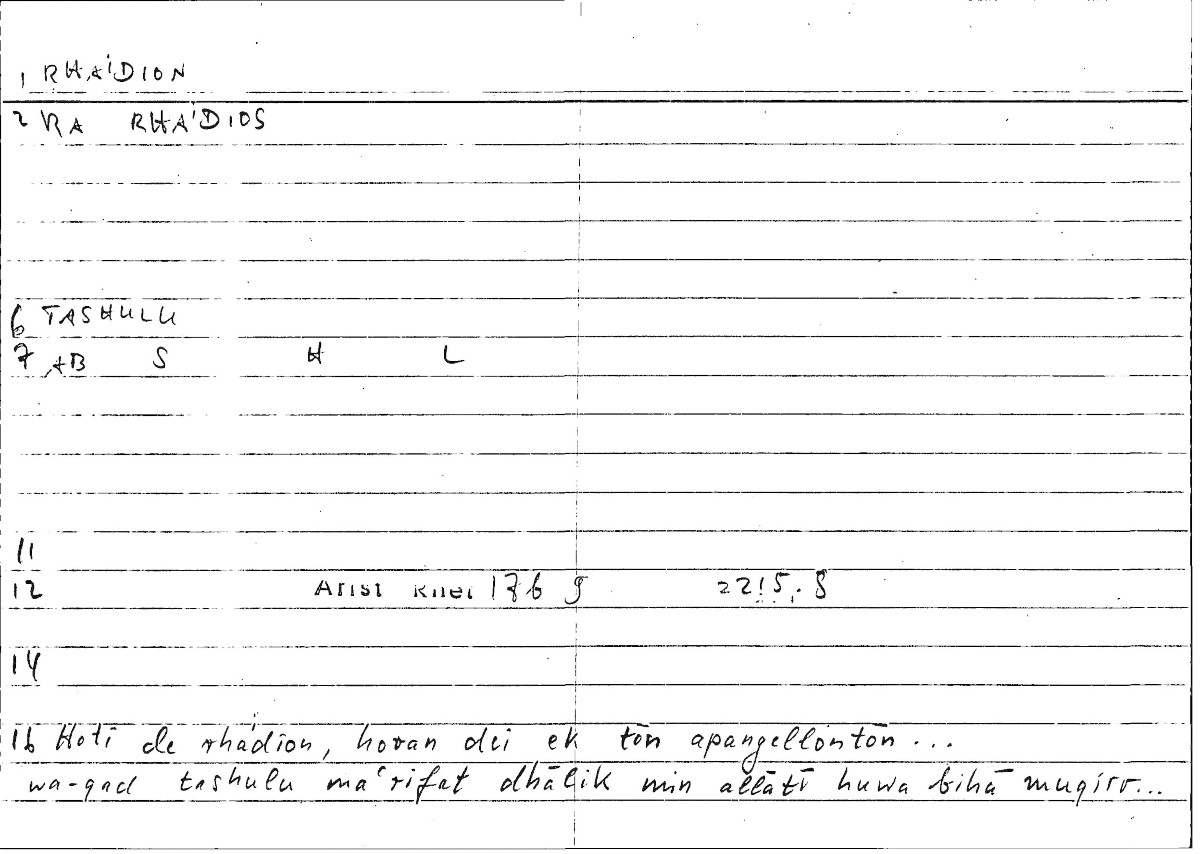 1 RHA'IDION
2 RA RHA'DIOS
6 TASHULU
7 AB S H L
11
12 Arist Rhet 176 9 2215.8
14
16 Hoti de rhá̄dion, horan dei ek tōn apangellontōn ...
wa-qad tashulu ma'rifat dhālik min allātī huwa bihā muqirr...